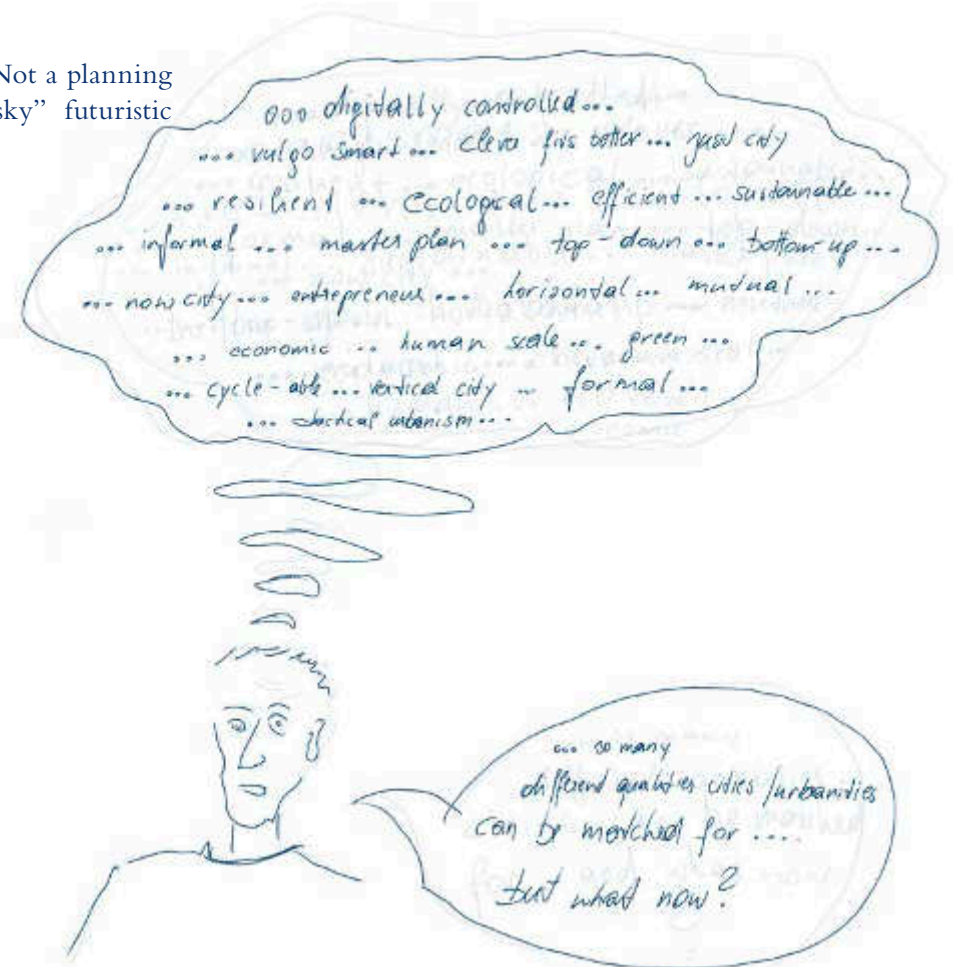 Not a planning
sky” futuristic
ooo digitally controlled...
... vulgo smart... city
... resilient ... ecological... efficient ... sustainable...
... informal ... master plan ... top-down ... bottom up ...
... now city ... entrepreneur ... horizontal ... mutual ...
... economic ... human scale ... green ...
... cycle-able ... vertical city ... formal ...
... tactical urbanism ...
... so many
different qualities cities/urbanities
can be for ....
but what now?